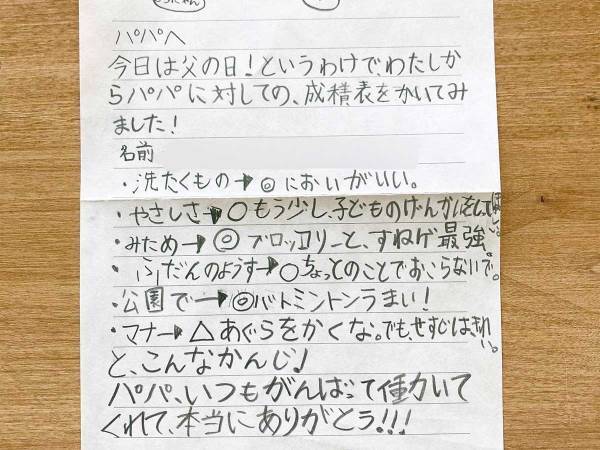 パパへ
今日は父の日!というわけで、わたしか
らパパに対しての、成積表をかいてみ
ました!
名前
・洗たくもの→◎においがいい。
・やさしさ→○もう少し、子どものげんかいをしってほしい。
・みため→◎ブロッコリーと、すねゲ最強。
・ふだんのようす→○ちょっとのことでおこらないで。
・公園で→◎バトミントンうまい!
・マナー→△あぐらをかくな。でも、せすじはきれい。
と、こんなかんじ!
パパ、いつもがんばって働いて
くれて、本当にありがとう!!!